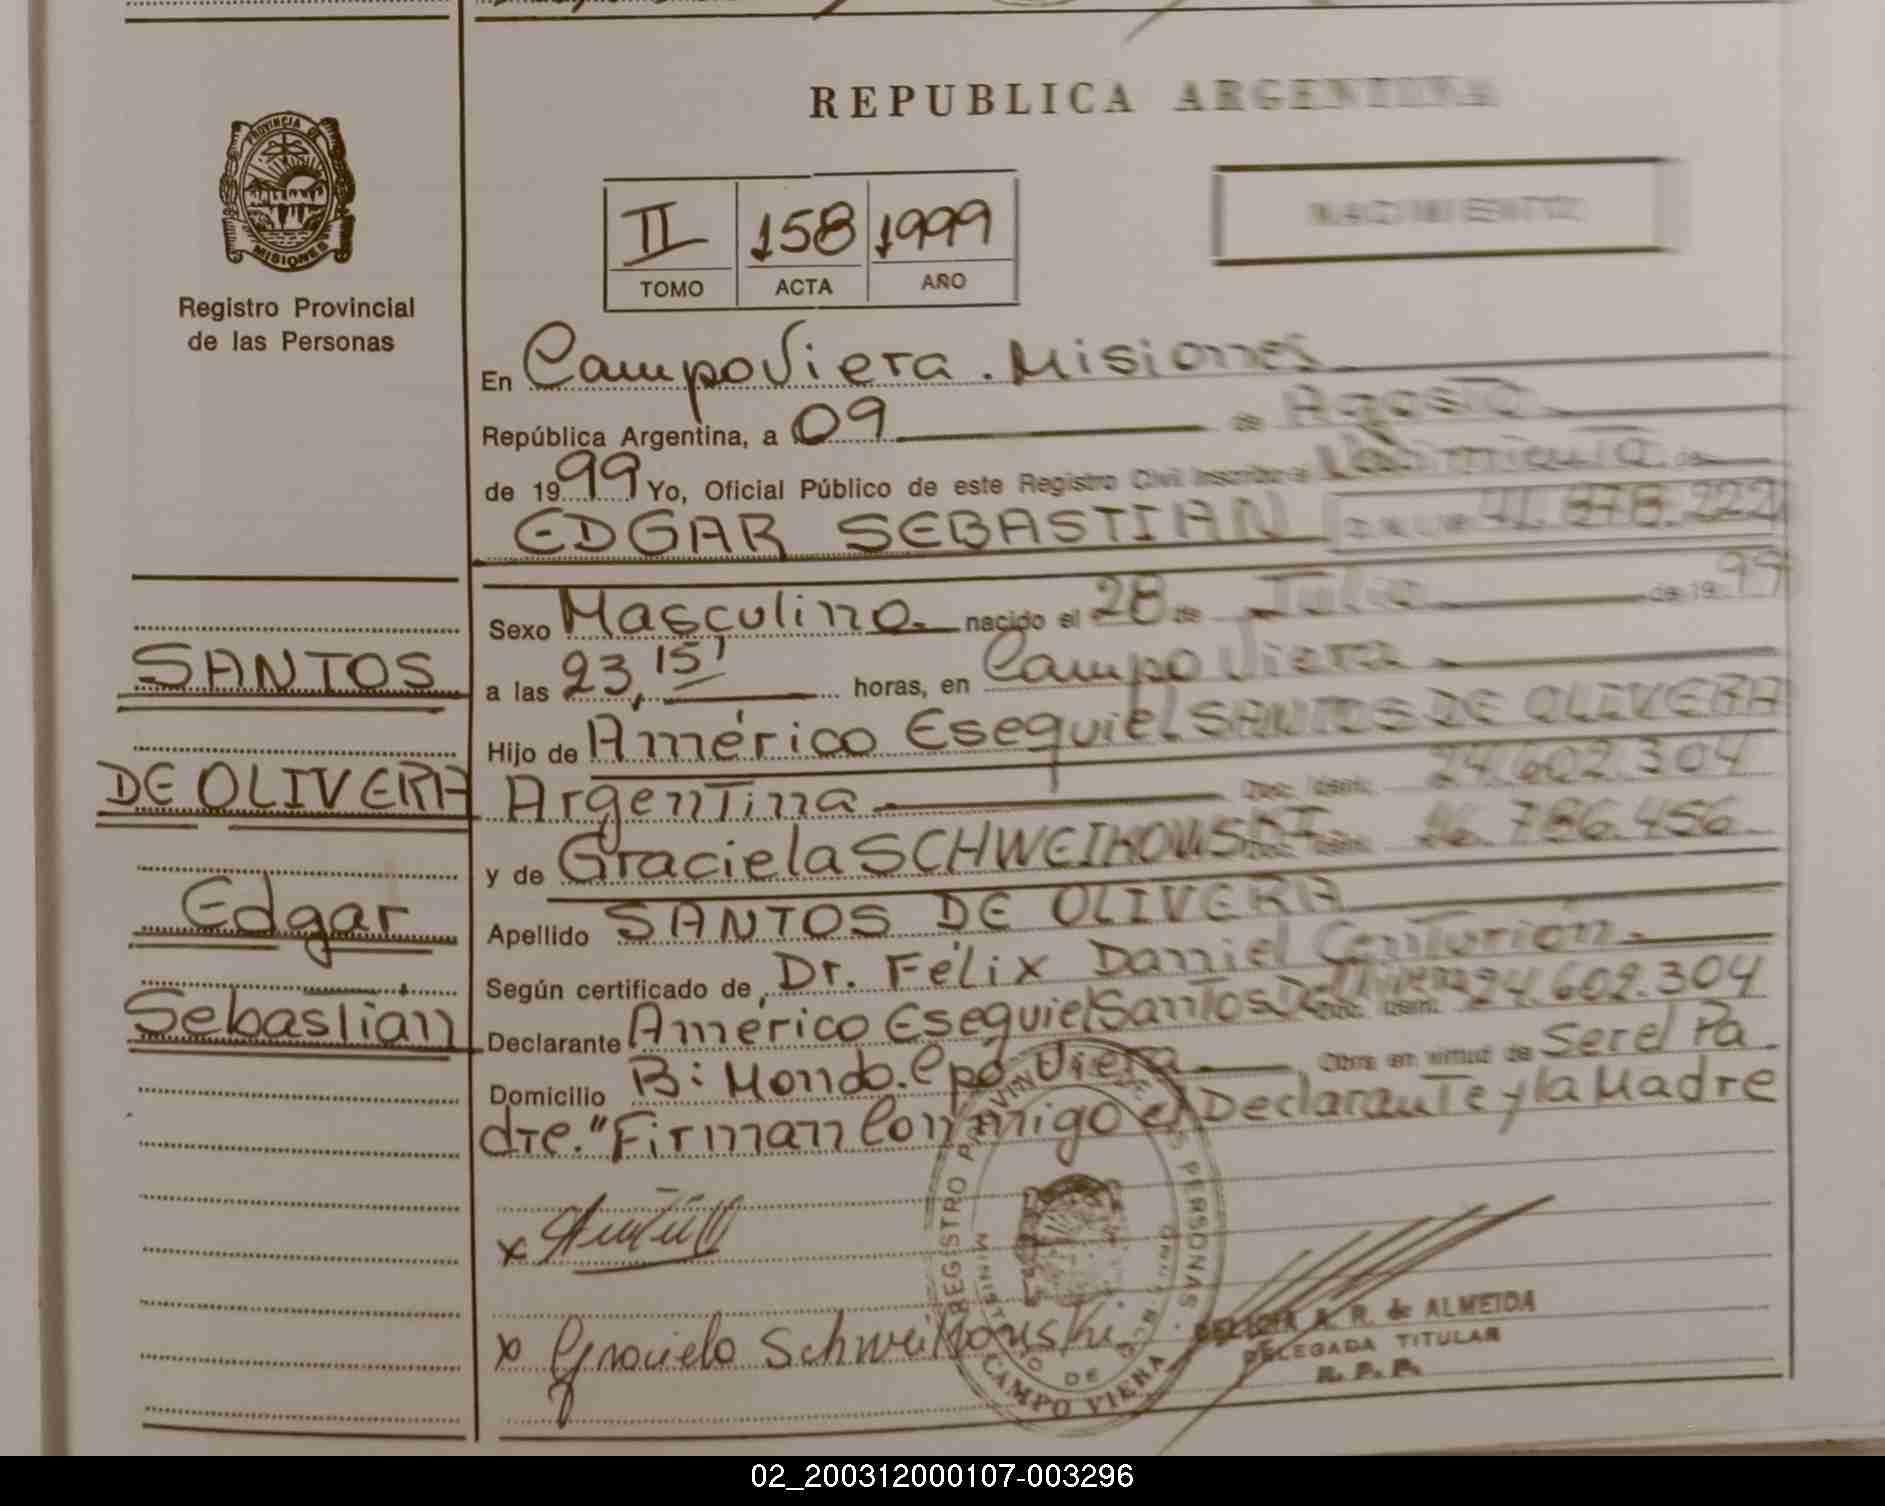 REPUBLICA ARGENTINA
PROVINCIA DE
MISIONES
Registro Provincial
de las Personas
II 158 1999
TOMO ACTA AÑO
NACIMIENTO
En Campo Viera. Misiones
República Argentina, a 09 de Agosto
de 1999 Yo, Oficial Público de este Registro Civil inscribo el Nacimiento de
EDGAR SEBASTIAN D.N.I. Nº 41.878.222
Sexo Masculino. nacido el 28 de Julio de 1999
a las 23,15' horas, en Campo Viera
Hijo de Américo Esequiel SANTOS DE OLIVERA
Argentina Doc. Ident. 24.602.304
y de Graciela SCHWEIKOWSKI Doc. Ident. 16.786.456
Apellido SANTOS DE OLIVERA
Según certificado de, Dr. Félix Daniel Centurión.
Declarante Américo Esequiel Santos De Olivera Doc. Ident. 24.602.304
Domicilio B: Mondo. Cpo Viera, Obra en virtud de Ser el Pa
dre." Firman Conmigo el Declarante y la Madre
SANTOS
DE OLIVERA
Edgar
Sebastián
x
x Graciela Schweikowski
REGISTRO PROVINCIAL DE LAS PERSONAS
CAMPO VIERA
A. R. de ALMEIDA
DELEGADA TITULAR
R. P. P.
02_200312000107-003296